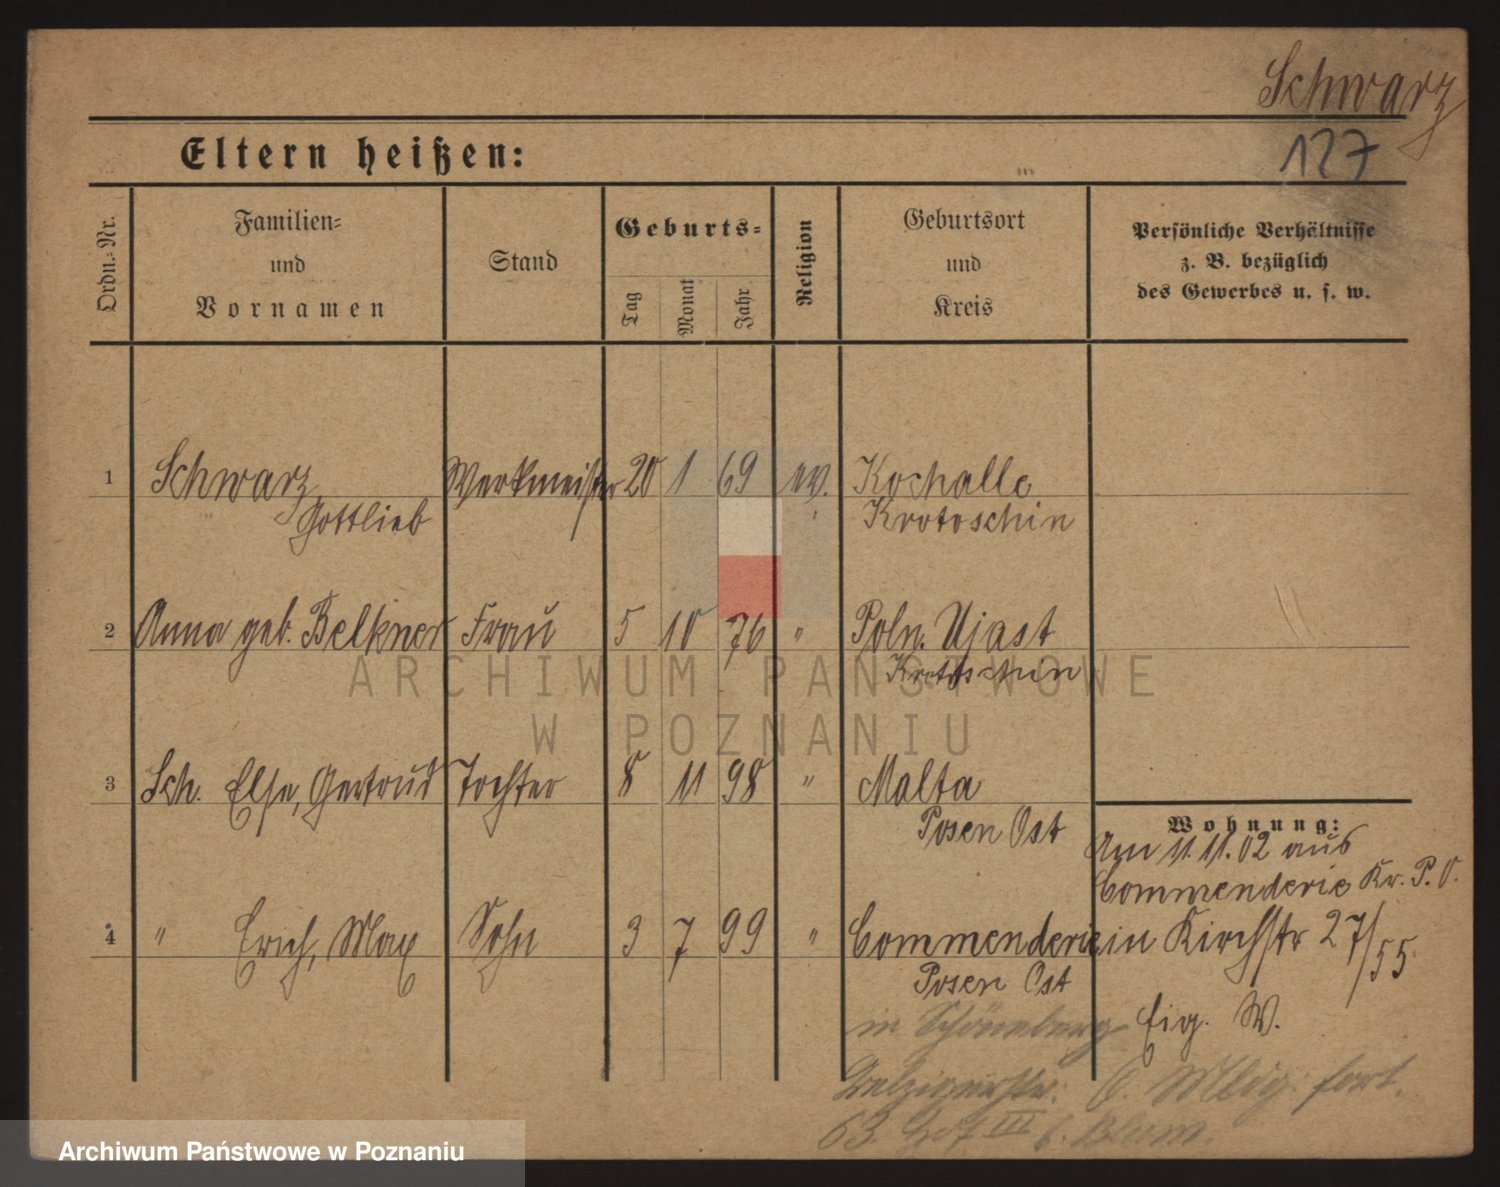 Schwarz
127
Eltern heißen:
Ordn.-Nr.
Familien-
und
Vornamen
Stand
Geburts-
Tag
Monat
Jahr
Religion
Geburtsort
und
Kreis
Persönliche Verhältnisse
z. B. bezüglich
des Gewerbes u. s. w.
1 Schwarz Werkmeister 20 1 69 ev. Kochalle
Gottlieb Krotoschin
2 Anna geb. Belkner Frau 5 10 76 " Poln. Ujast
Krotoschin
ARCHIWUM PAŃSTWOWE
W POZNANIU
3 Sch. Else, Gertrud Tochter 8 11 98 " Malta
Posen Ost
Wohnung:
Am 11.11.02 aus
Commenderie Kr. P. O.
4 " Erich, Max Sohn 3 7 99 " Commenderie in Kirchstr 27/55
Posen Ost
in Schöneberg Eig. W.
63 Hof III b. Blum.
Archiwum Państwowe w Poznaniu